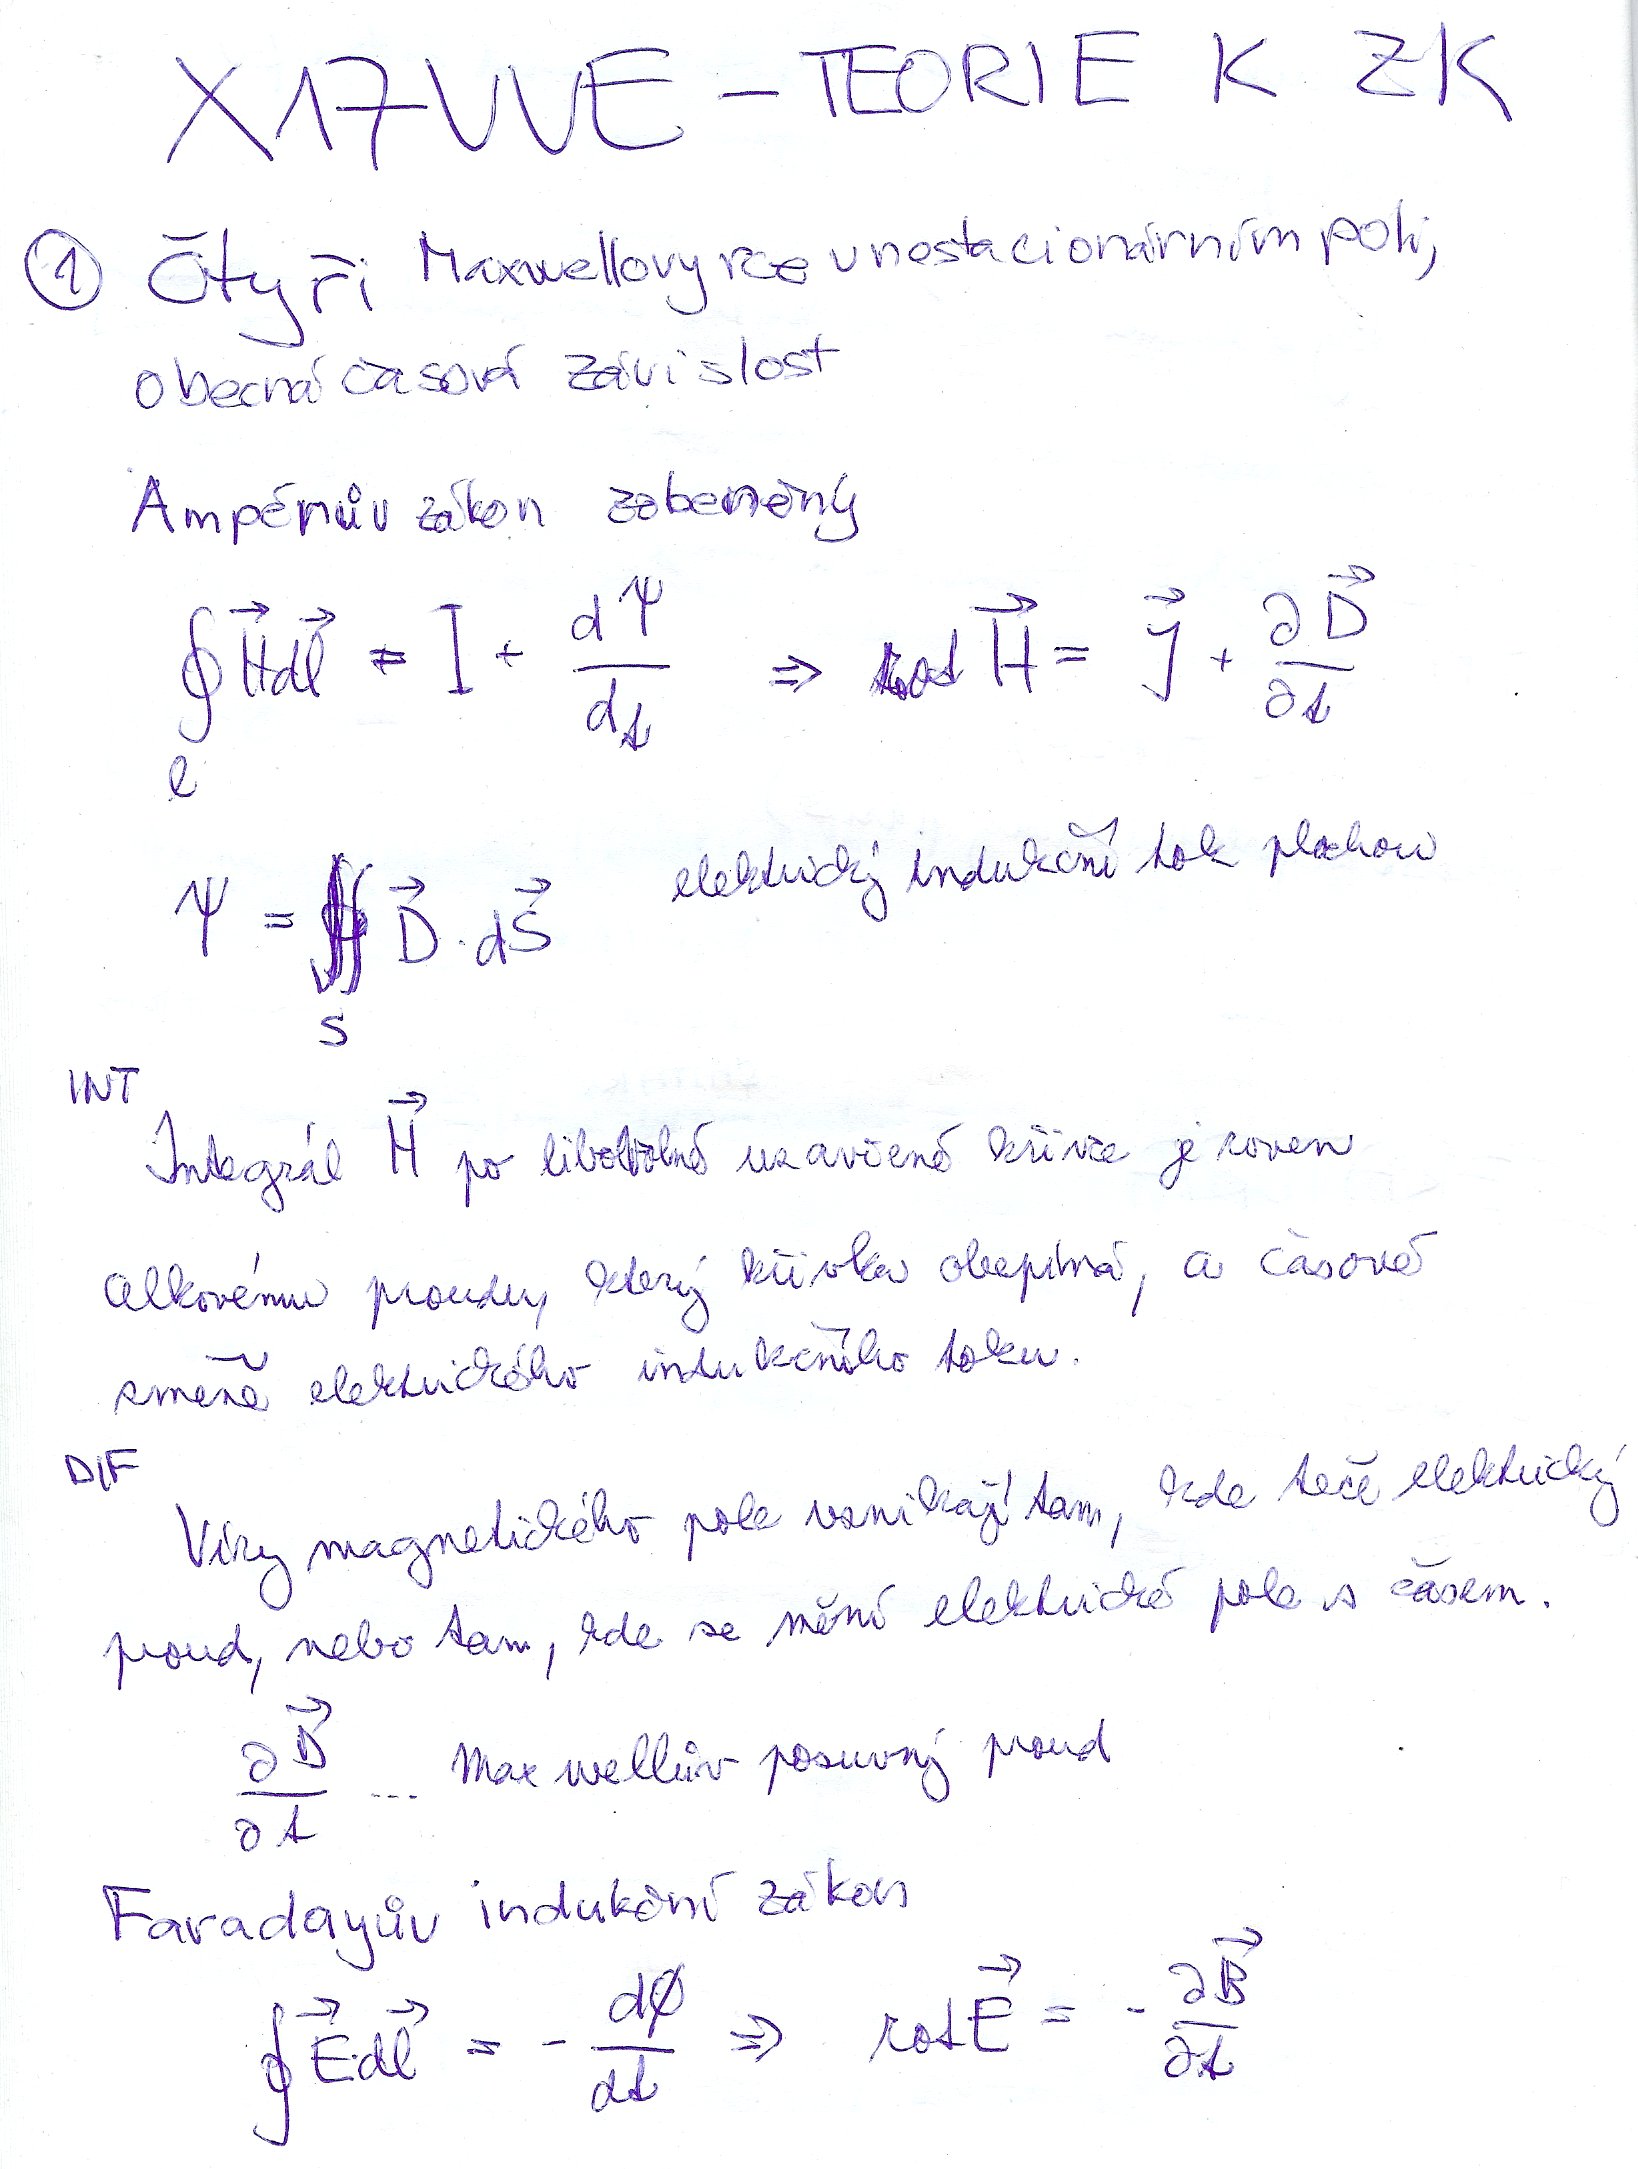 X17VVE – TEORIE K ZK
① Čtyři Maxwellovy rce v nestacionárním poli,
obecná časová závislost
Ampérův zákon zobecněný
∮ₗ H⃗ dl⃗ = I + dΨ/dt ⇒ rot H⃗ = J⃗ + ∂D⃗/∂t
Ψ = ∬ₛ D⃗ · dS⃗ elektrický indukční tok plochou
INT
Integrál H⃗ po libovolné uzavřené křivce je roven
celkovému proudu, který křivka obepíná, a časové
změně elektrického indukčního toku.
DIF
Víry magnetického pole vznikají tam, kde teče elektrický
proud, nebo tam, kde se mění elektrické pole s časem.
∂D⃗/∂t ... Maxwellův posuvný proud
Faradayův indukční zákon
∮ E⃗ dl⃗ = - dφ/dt ⇒ rot E⃗ = - ∂B⃗/∂t